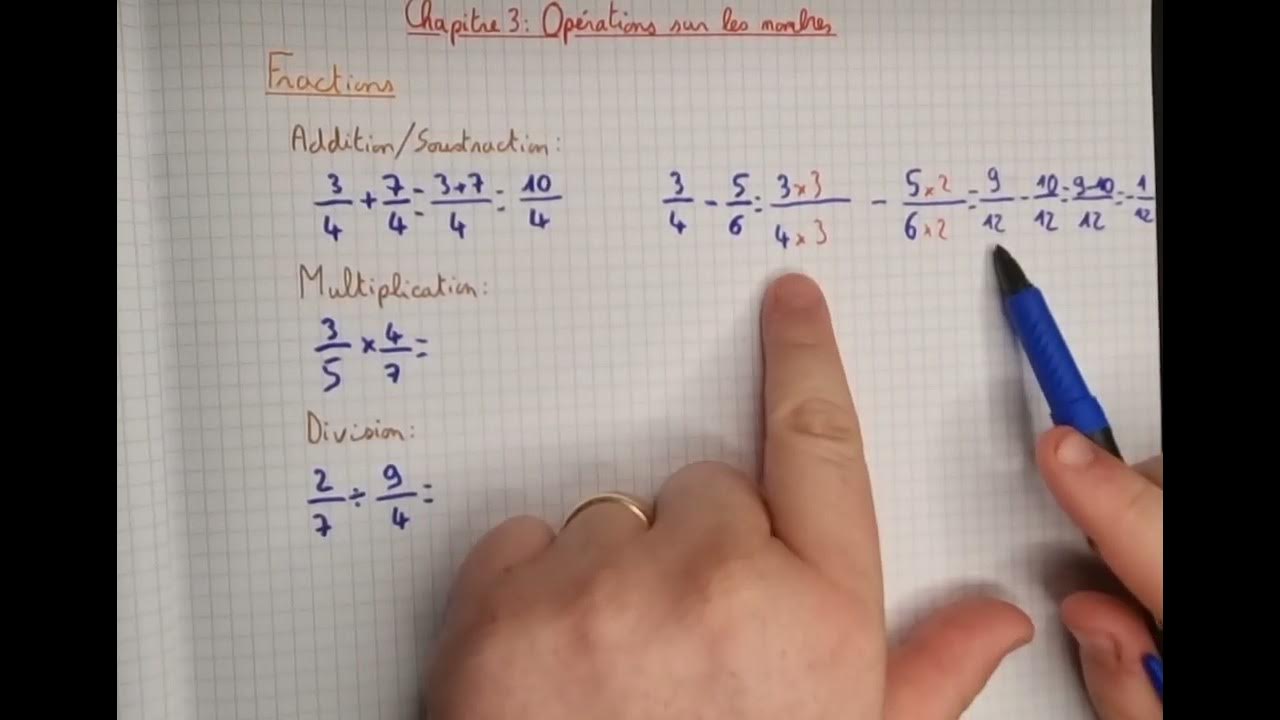 Chapitre 3: Opérations sur les nombres
Fractions
Addition/Soustraction:
3/4 + 7/4 = 3+7/4 = 10/4
3/4 - 5/6 = 3×3/4×3 - 5×2/6×2 = 9/12 - 10/12 = 9-10/12 = -1/12
Multiplication:
3/5 × 4/7 =
Division:
2/7 ÷ 9/4 =